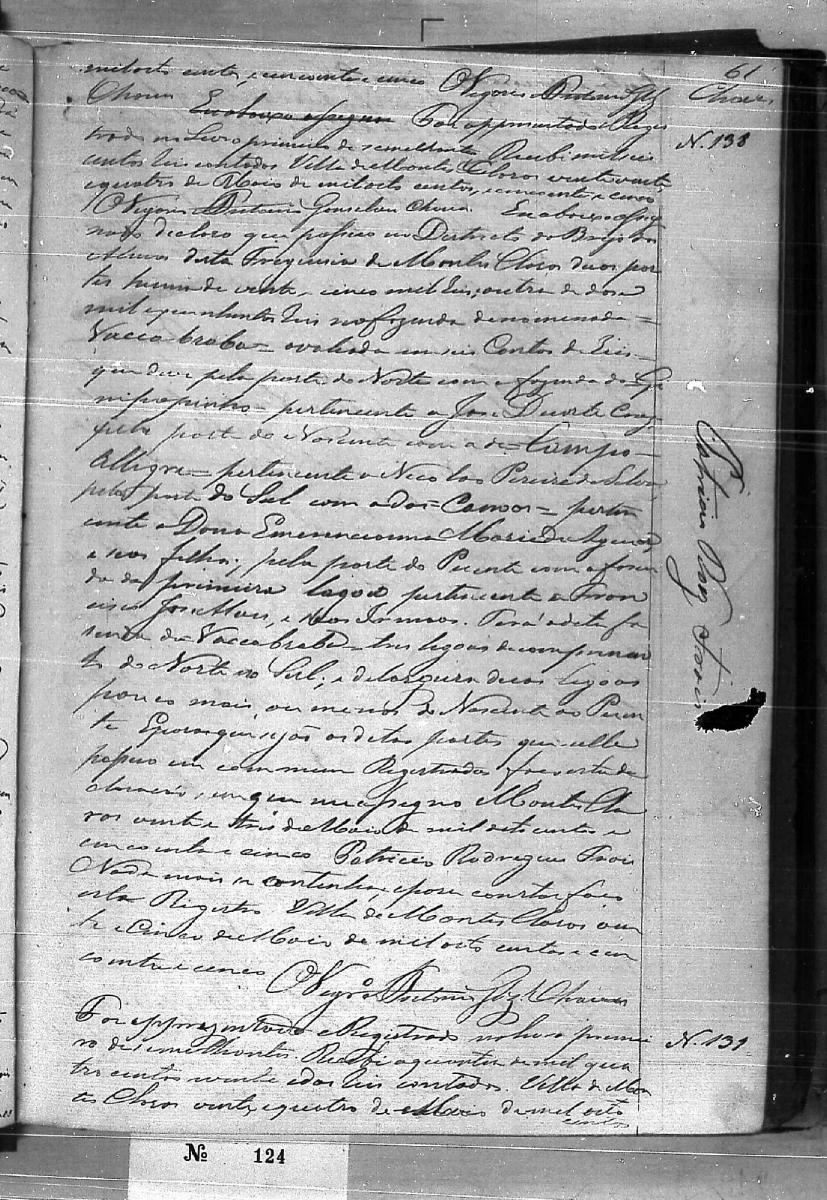 61
Chaves
mil oito centos, e cincoenta e cinco O Vigario Antonio Glz
Chaves Em abaixo assigna Foi apresentado e Regis
trado no Livro primeiro de semelhantes Recebi mil seis
N. 138
centos reis contados Villa de Montes Claros vinte
e quatro de Maio de mil oito centos, e cincoenta e cinco
O Vigario Antonio Gonsalves Chaves. Em abaixo assig
nado declaro que possuo no Districto do Brejo das
Almas desta Freguesia de Montes Claros duas par
tes huma de vinte cinco mil reis, outra de dose
mil e quinhentos reis na fazenda denomenada =
Vacca braba = avaliada em seis Contos de Reis =
que deve pela parte do Norte com a fazenda do Ge
nipapinho pertencente a Jose Duarte
pela parte do Nascente com a de = Campo =
Allegre = pertencente a Nicolao Pereira da Silva
pela parte do Sul com a das = Canoas = perten
cente a Dona Emerenciana Maria de Aguiar,
e seos filhos; pela parte do Poente com a fasen
da da primeira lagoa pertencente a Fran
cisco Jose Maia, e seos Irmaos. Terá a dita fa
senda da Vacca braba = tres legoas de comprimen
to do Norte ao Sul; e de largura duas legoas
pouco mais, ou menos do Nascente ao Poen
te E para que sejão as ditas partes que nella
possuo em commum Registradas faço esta de
claração, em que me assigno Montes Cla
ros vinte e tres de Maio de mil oito centos e
cincoenta e cinco Patricio Rodrigues Frois
Nada mais se continha, e para constar faço
este Registro. Villa de Montes Claros vin
te e Cinco de Maio de mil oito centos e cin
coenta e cinco O Vigrº Antonio Glz Chaves
Patricio Roiz Frois
Foi appresentado e Registrado no livro primei
ro de semelhantes. Recebi a quantia de mil qua
N. 139
tro centos vinte e dois reis contados. Villa de Mon
tes Claros vinte, e quatro de Maio de mil oito
centos
Nº 124